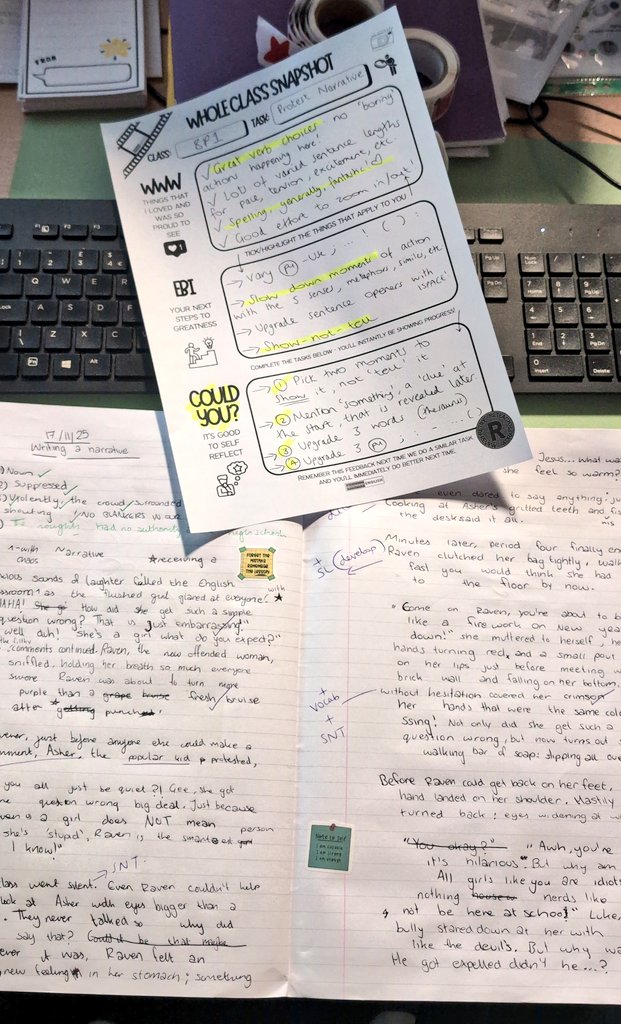 FROM
WHOLE CLASS SNAPSHOT
CLASS: 8P1 TASK: Protest Narrative
WWW
THINGS THAT I LOVED AND WAS SO PROUD TO SEE
✓ Great verb choices - no 'boring' action happening here!
✓ Lots of varied sentence lengths for pace, tension, excitement, etc.
✓ Spelling, generally, fantastic! ♡
✓ Good effort to zoom in/out!
TICK/HIGHLIGHT THE THINGS THAT APPLY TO YOU
EBI
YOUR NEXT STEPS TO GREATNESS
→ Vary PU - use , ... ! ( ) :
→ Slow down moments of action with the 5 senses, metaphors, similes, etc
→ Upgrade sentence openers with 'ISPACE'
→ Show-not-tell
COMPLETE THE TASKS BELOW - YOU'LL INSTANTLY BE SHOWING PROGRESS!
COULD YOU?
IT'S GOOD TO SELF REFLECT
→ 1 Pick two moments to show it, not 'tell' it
→ 2 Mention 'something', a 'clue' at the start, that is revealed later
→ 3 Upgrade 3 words (thesaurus)
→ 4 Upgrade 3 PU ; : ... ( )
REMEMBER THIS FEEDBACK NEXT TIME WE DO A SIMILAR TASK AND YOU'LL IMMEDIATELY DO BETTER NEXT TIME.
R
17/11/25
Writing a narrative
) Noun
2) Suppressed
3) Violently, the crowd surrounded
shouting
Narrative
chaos
*receiving a
FORGET THE MISTAKE REMEMBER THE LESSON
sounds of laughter filled the English
as the flushed girl glared at everyone. * with
HAHA! She got How did she get such a simple
question wrong? That is just embarrassing!"
well duh! She's a girl what do you expect?"
comments continued. Raven, the new offended woman,
sniffled, holding her breath so much everyone
swore Raven was about to turn more
purple than a grape bruise fresh bruise
after getting punched.
ever, just before anyone else could make a
Asher, the popular kid protested,
you all just be quiet?! Gee, she got
question wrong big deal. Just because
a girl does NOT mean
she's 'stupid', Raven is the smartest girl person
I know!"
SNT.
class went silent. Even Raven couldn't help
look at Asher with eyes bigger than a
. They never talked so why did
say that? Could it be that maybe
ever it was, Raven felt an
new feeling in her stomach; something
Jesus... what wa
she feel so warm?
even dared to say anything: ju
Looking at Asher's gritted teeth and fis
the desk said it all.
Minutes later, period four finally en
+ SL (develop)
Raven clutched her bag tightly, walk
fast you would think she had
to the floor by now.
"Come on Raven, you're about to b
like a firework on New yea
down!" she muttered to herself, he
hands turning red and a small pout
on her lips just before meeting w
brick wall and falling on her bottom.
+ Vocab + SNT
without hesitation covered her crimson
her hands that were the same colo
ssing! Not only did she get such a
question wrong, but now turns out s
walking bar of soap: slipping all ove
Before Raven could get back on her feet,
hand landed on her shoulder. Hastily
turned back: eyes widening at wh
Note to Self
I am capable
I am strong
I am enough
"You okay?" "Awh, you're
it's hilarious. But why am
All girls like you are idiot
nothing nerds like
not be here at school!" Luke,
bully stared down at her with
like the devil's. But why wa
He got expelled didn't he...?